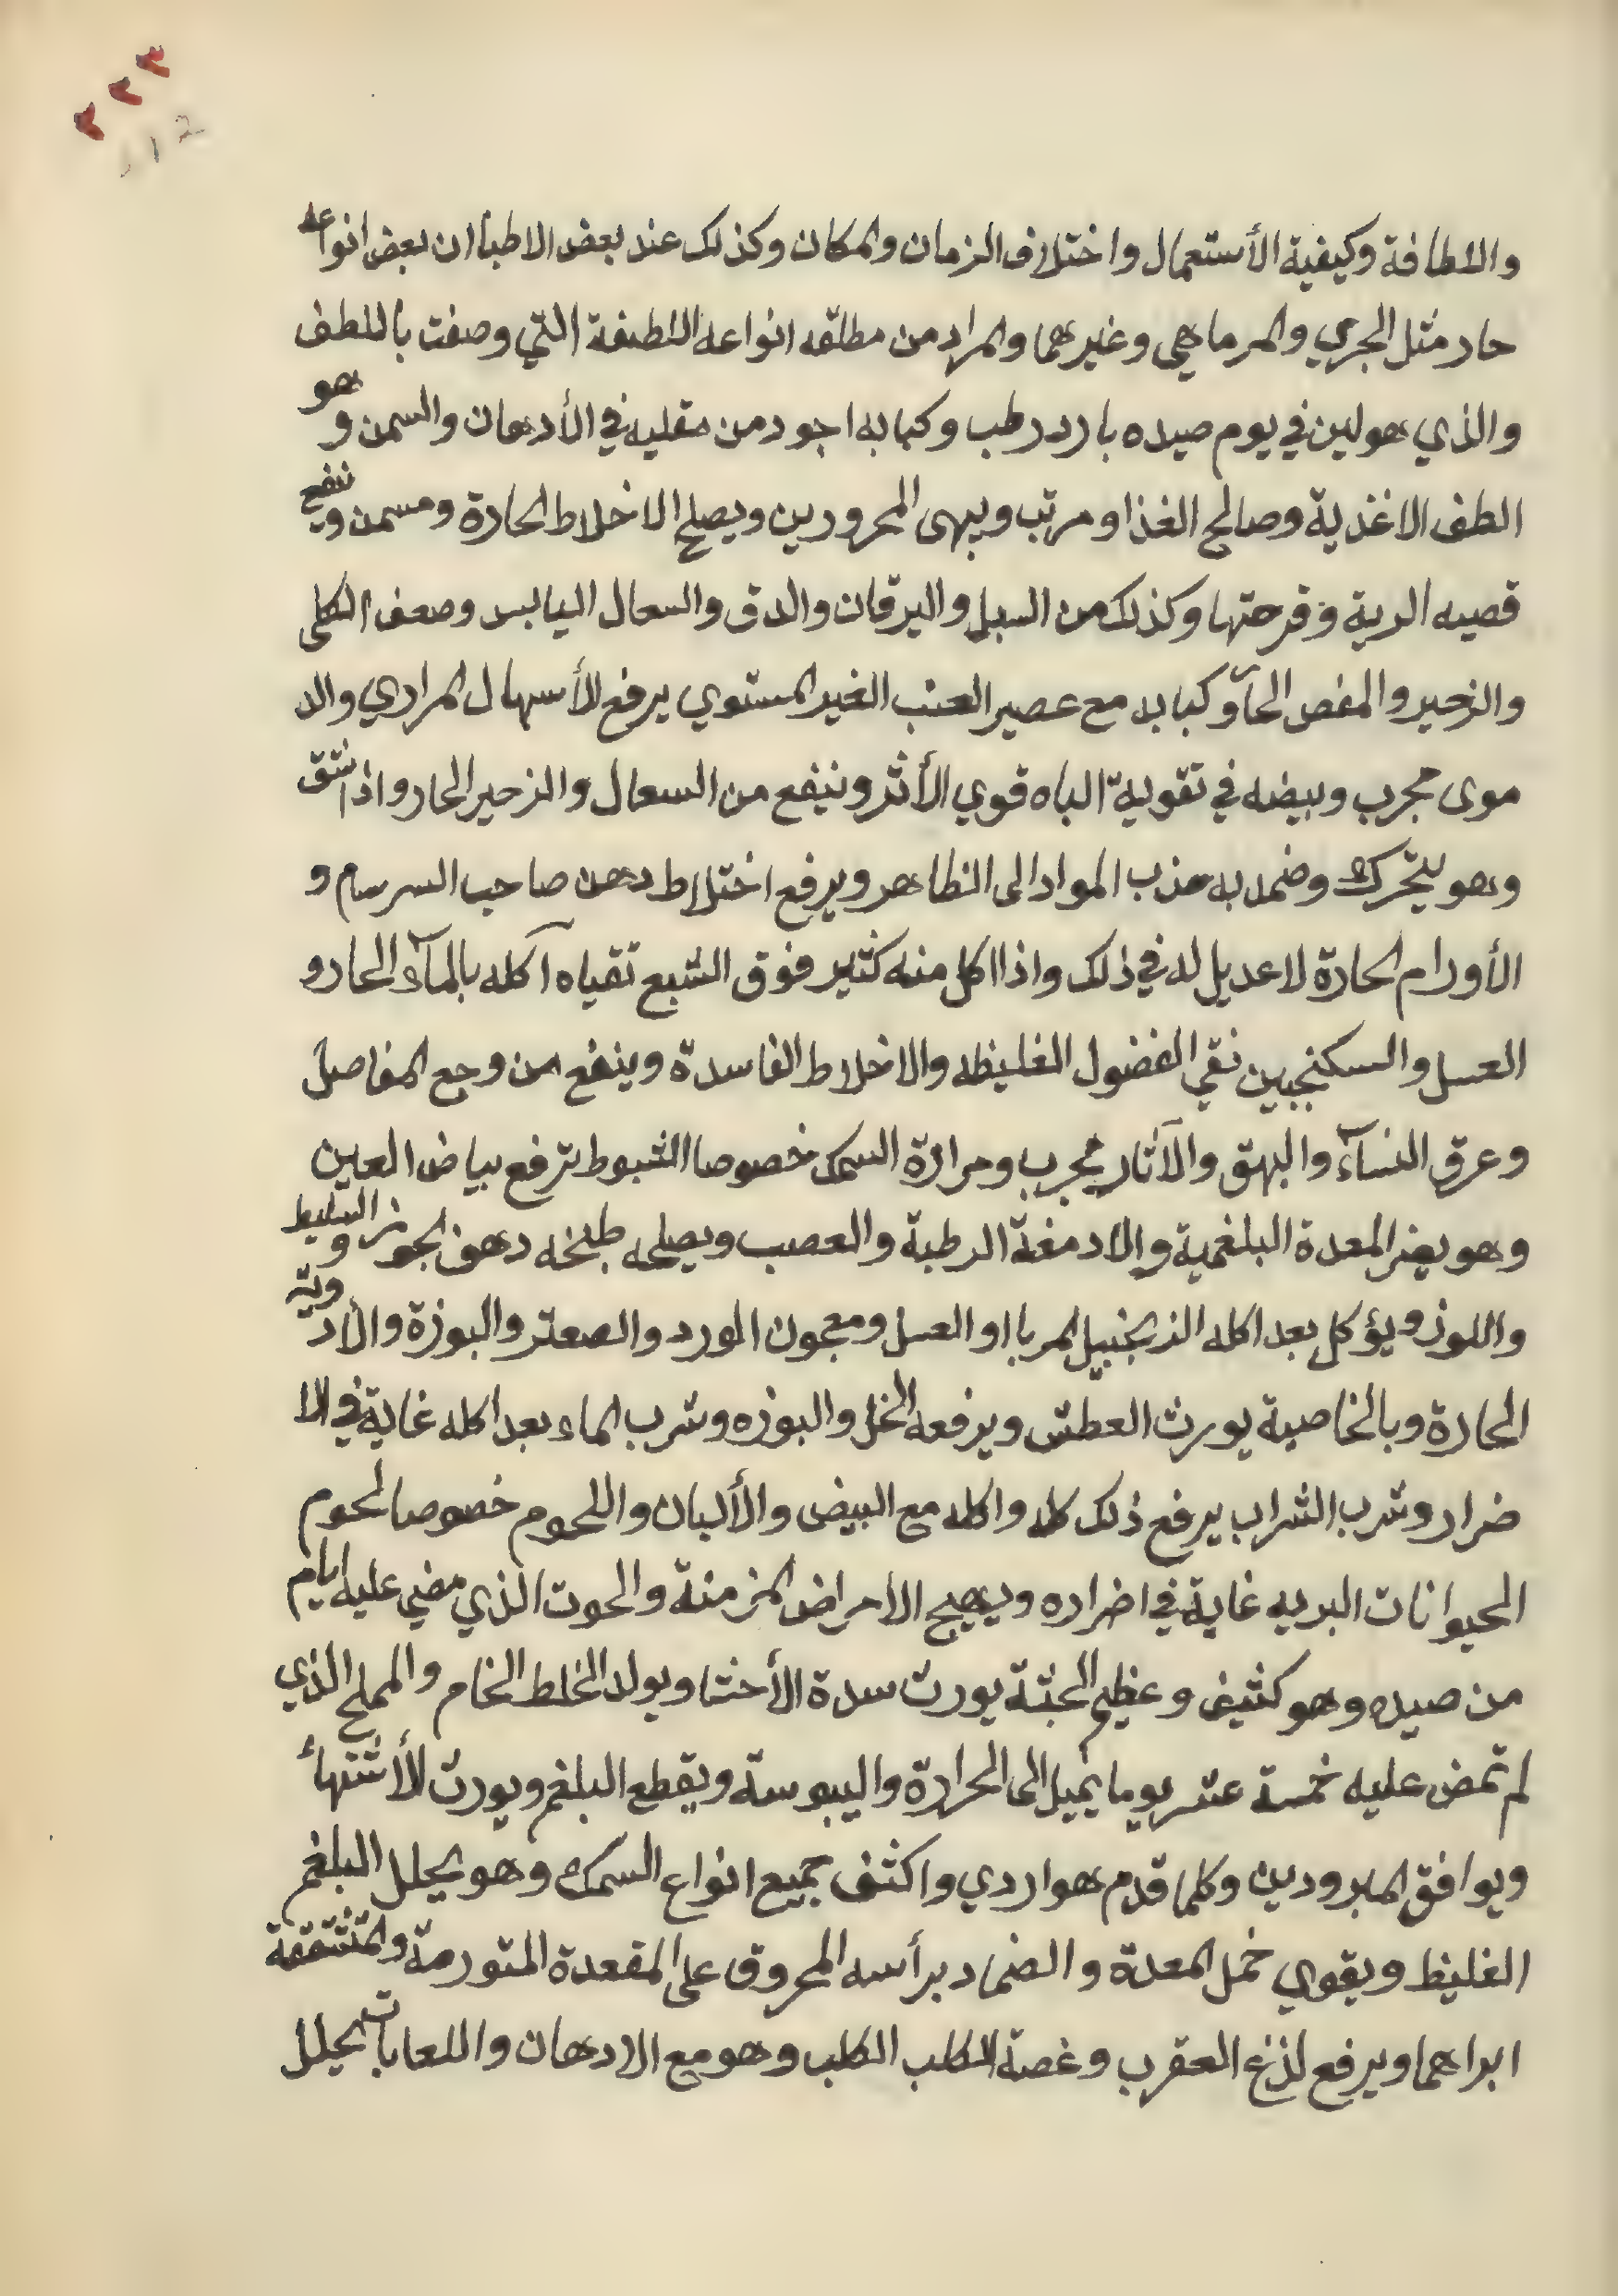 ٢٢٣
112
واللطافة وكيفية الأستعمال واختلاف الزمان والمكان وكذلك عند بعض الاطبا ان بعض انواعه
حار مثل الجري والمرماهي وغيرهما والمراد من مطلقه انواعه اللطيفة التي وصفت باللطف
والذي هو لين في يوم صيده بارد رطب وكبابه اجود من مقليه في الأدهان والسمن وهو
الطف الاغذية وصالح الغذا ومرتب ويبهى المحرورين ويصلح الاخلاط الحارة ومسمن وينفع
قصبه الرية وقرحتها وكذلك من السبل واليرقان والدق والسعال اليابس وضعف الكلى
والزحير والمغص الحآ وكبابه مع عصير العنب الغير المستوي يرفع الأسهال المراري والد
موى مجرب وبيضه في تقوية الباه قوي الأثر وينفع من السعال والزحير الحار واذا شق
وهو يتحرك وضمد به جذب المواد الى الظاهر ويرفع اختلاط دهن صاحب السرسام و
الأورام الحارة لا عديل له في ذلك واذا اكل منه كثير فوق الشبع تقياه آكله بالمآء الحار و
العسل والسكنجبين نقي الفضول الغليظه والاخلاط الفاسدة وينفع من وجع المفاصل
وعرق النسآء والبهق والآثار مجرب ومرارة السمك خصوصا الشبوط ترفع بياض العين
وهو يضر المعدة البلغمية والادمغة الرطبة والعصب ويصلحه طبخه دهن الجوز والسليط
واللوز ويؤكل بعد اكله الزنجبيل المربا او العسل ومعجون الورد والصعتر والبوزة والأدوية
الحارة وبالخاصية يورث العطش ويرفعه الخل والبوزه وشرب الماء بعد اكله غاية في الا
ضرار وشرب الشراب يرفع ذلك كله واكله مع البيض والألبان واللحوم خصوصا لحوم
الحيوانات البريه غاية في اضراره ويهيج الامراض المزمنة والحوت الذي مضي عليه ايام
من صيده وهو كثيف وعظيم الجثة يورث سدة الأحشا ويولد الخلط الخام والمملح الذي
لم تمض عليه خمسة عشر يوما يميل الى الحرارة واليبوسة ويقطع البلغم ويورث الأشتهاء
ويوافق المبرودين وكلما قدم هو اردي واكثف جميع انواع السمك وهو يحلل البلغم
الغليظ ويقوي خمل المعدة والضماد برأسه المحروق على المقعدة المتورمة والمتشققة
ابراهما ويرفع لذغ العقرب وغصة الكلب الكلب وهو مع الادهان واللعابات يحلل